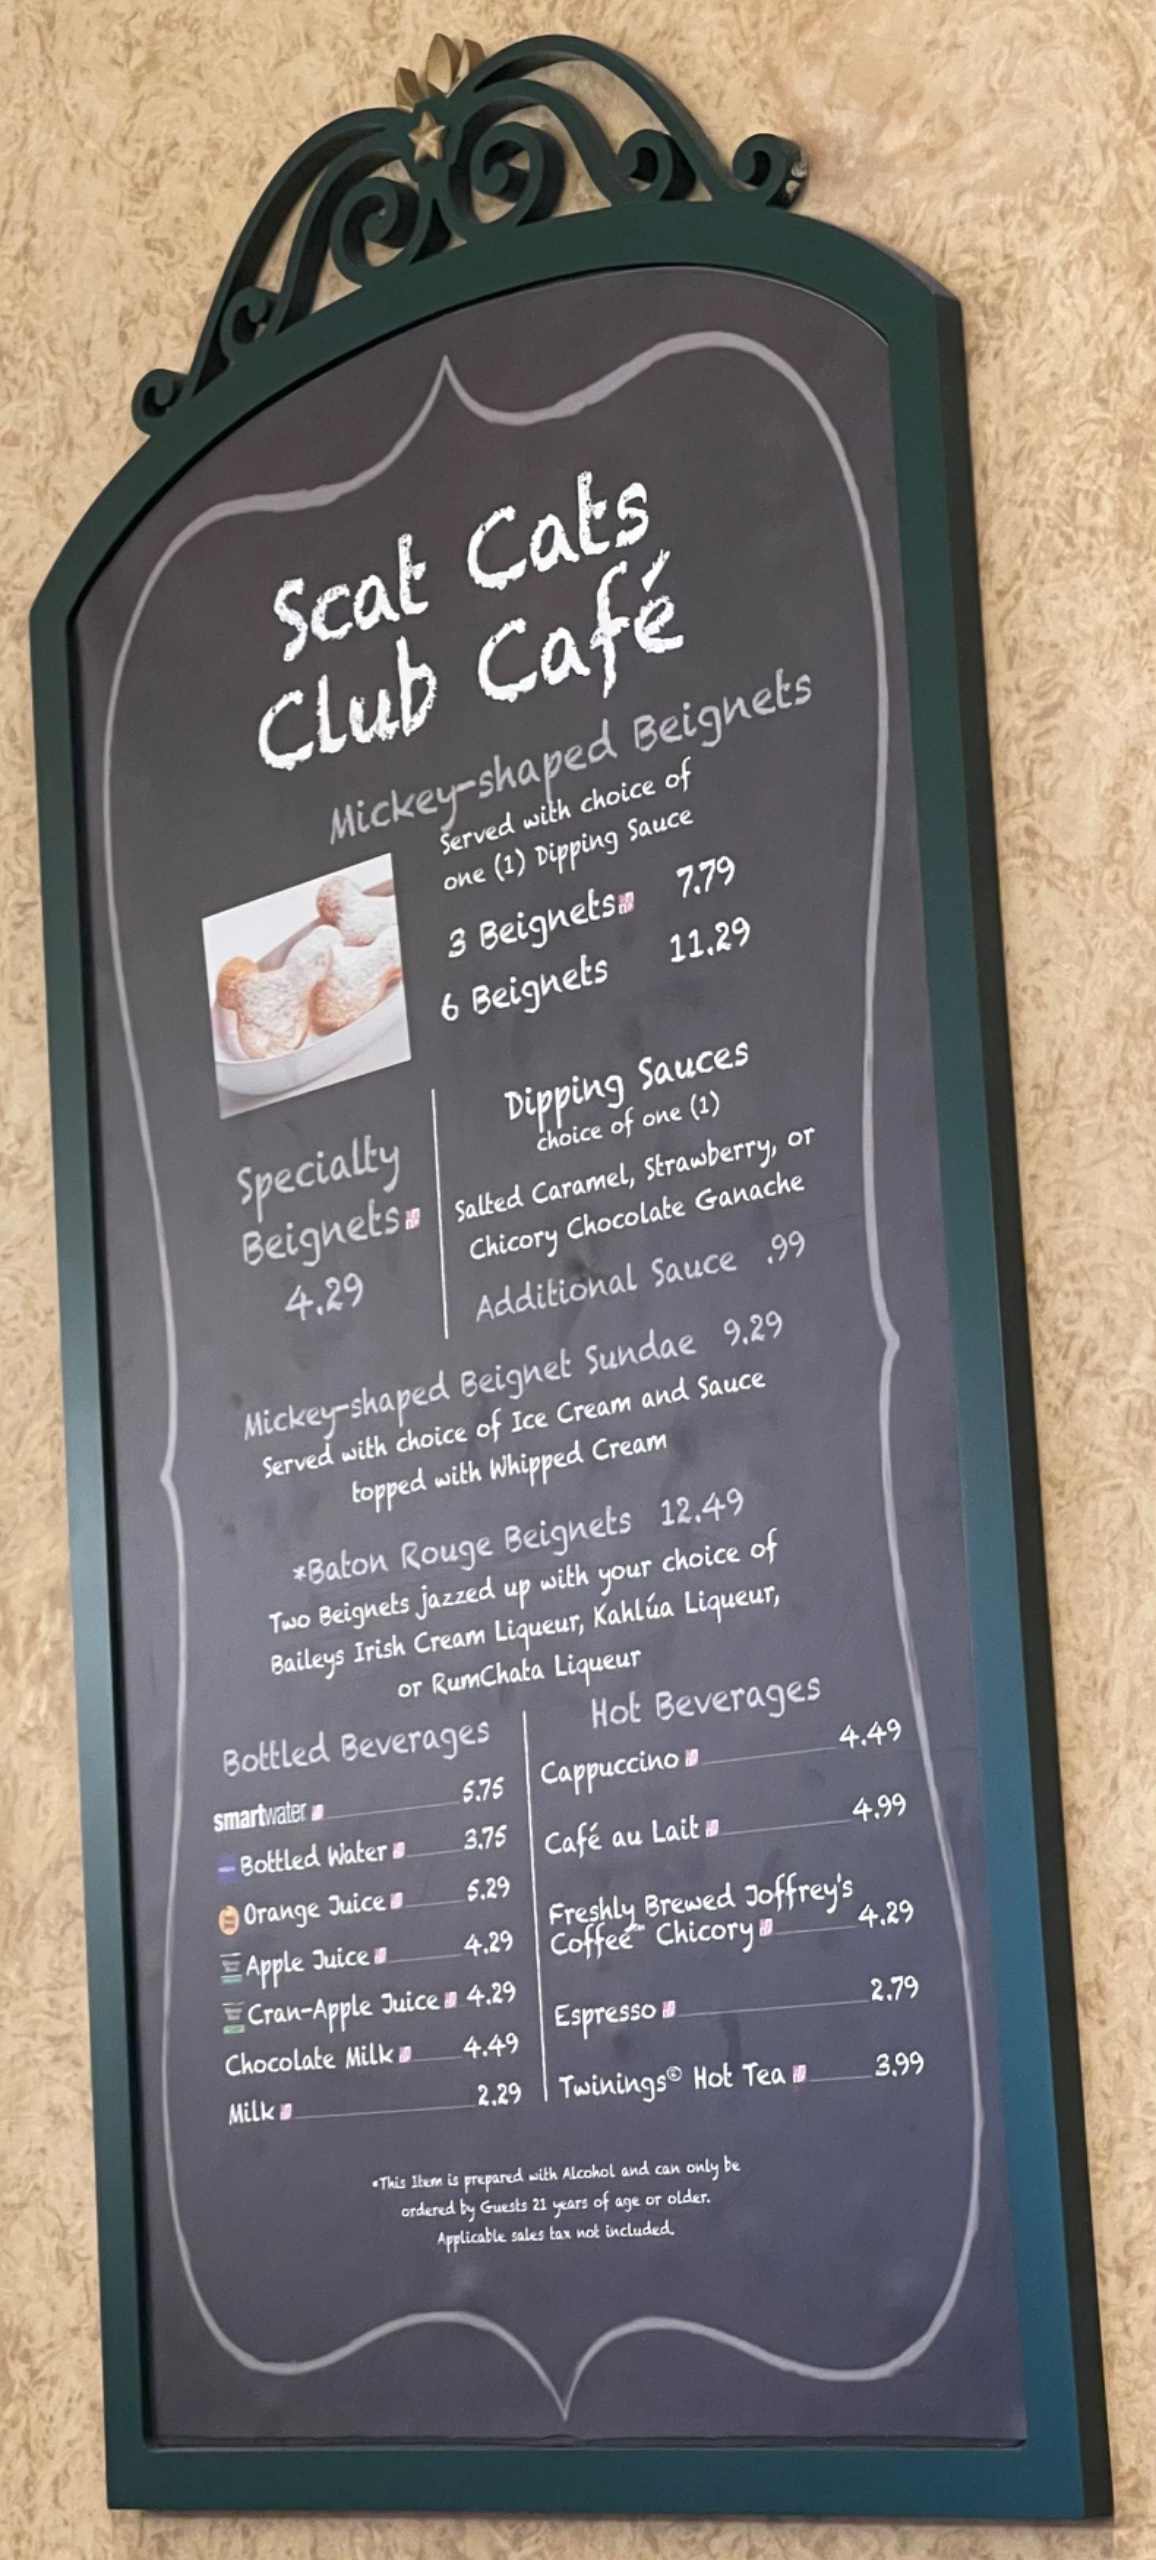 Scat Cats
Club Café
Mickey-shaped Beignets
Served with choice of
one (1) Dipping Sauce
3 Beignets 7.79
6 Beignets 11.29
Specialty
Beignets
4.29
Dipping Sauces
choice of one (1)
Salted Caramel, Strawberry, or
Chicory Chocolate Ganache
Additional Sauce .99
Mickey-shaped Beignet Sundae 9.29
Served with choice of Ice Cream and Sauce
topped with Whipped Cream
*Baton Rouge Beignets 12.49
Two Beignets jazzed up with your choice of
Baileys Irish Cream Liqueur, Kahlúa Liqueur,
or RumChata Liqueur
Bottled Beverages
smartwater 5.75
Bottled Water 3.75
Orange Juice 5.29
Apple Juice 4.29
Cran-Apple Juice 4.29
Chocolate Milk 4.49
Milk 2.29
Hot Beverages
Cappuccino 4.49
Café au Lait 4.99
Freshly Brewed Joffrey's
Coffee™ Chicory 4.29
Espresso 2.79
Twinings© Hot Tea 3.99
*This Item is prepared with Alcohol and can only be
ordered by Guests 21 years of age or older.
Applicable sales tax not included.